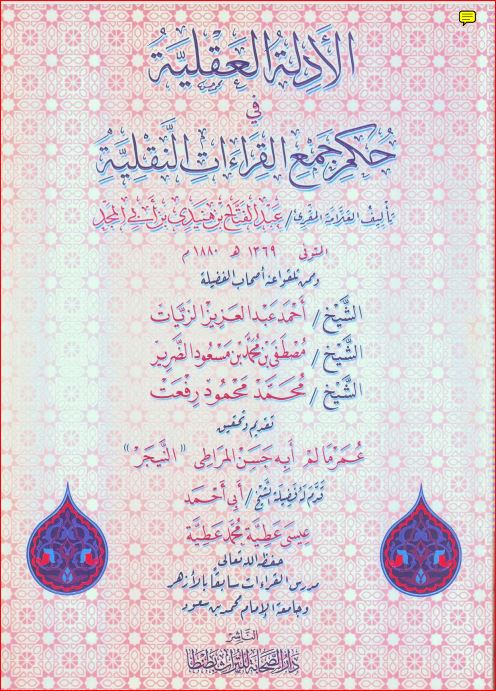 الأَدِلَّةُ العَقْلِيَّةُ
في
حُكْمِ جَمْعِ القِرَاءَاتِ النَّقْلِيَّةِ
تأليفُ العَلَّامَةِ المقرئ / عَبْدِ الفَتَّاحِ بْنِ هُنَيْدِي بْنِ أَبِي المَجْد
المتوفى ١٣٦٩ هـ ١٨٨٠ م
وممن تلقوا عنه أصحاب الفضيلة
الشَّيْخ / أَحْمَد عَبْد العَزِيز الزَّيَّات
الشَّيْخ / مُصْطَفَى بْن مُحَمَّد بْن مَسْعُود الضَّرِير
الشَّيْخ / مُحَمَّدْ مَحْمُود رِفْعَتْ
تقديم وتحقيق
عُمَر مَا لَمْ أَبِه حَسَنْ المَرَاطِى "النَّيجَرْ"
قدَّم له فضيلة الشيخ / أَبِي أَحْمَد
عِيسَى عَطِيَّة مُحَمَّد عَطِيَّة
حفظه الله تعالى
مدرس القراءات سابقًا بالأزهر
وجامعة الإمام محمد بن سعود
النَّاشِرُ
دَارُ الصَّحَابَةِ لِلتُّرَاثِ بِطَنْطَا